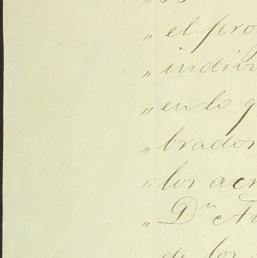 „ el pro
„ indivi
„ en lo q
„ brados
„ los acr
„ Dⁿ
de los